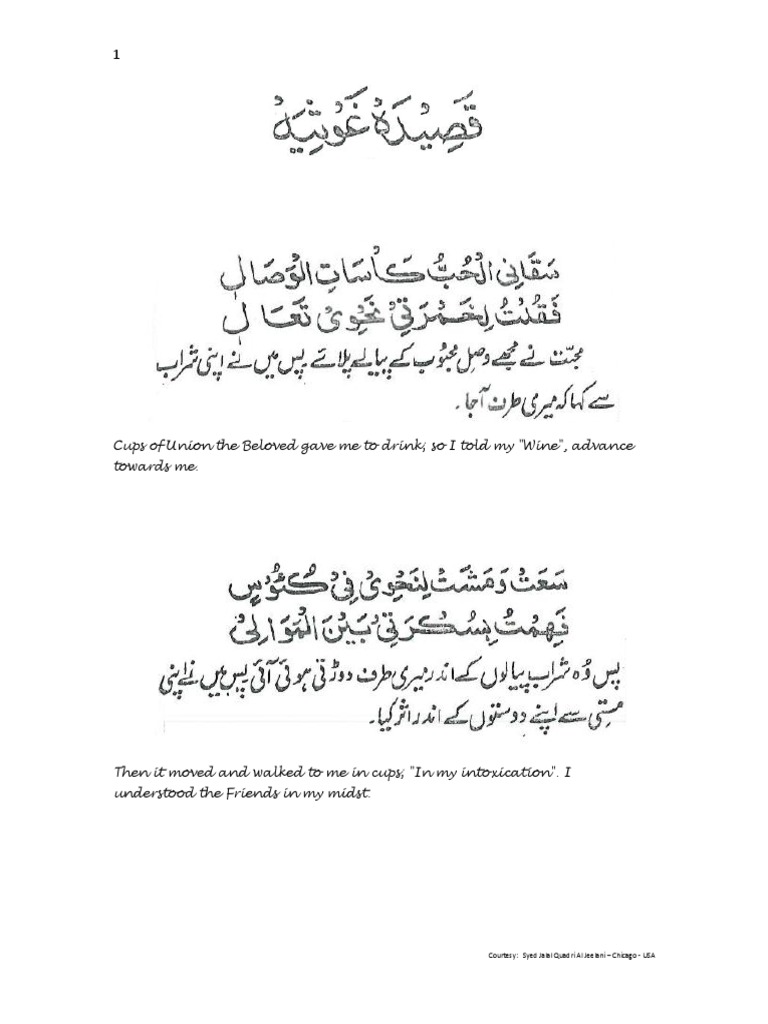 1
قَصِيْدَهْ غَوْثِيَهْ
سَقَانِی الْحُبُّ كَاْسَاتِ الْوَصَالِ
فَقُلْتُ لِخَمْرَتِیْ نَحْوِیْ تَعَالِ
محبّت نے مجھے وصل محبوب کے پیالے پلائے پس میں نے اپنی شراب
سے کہا کہ میری طرف آجا۔
Cups of Union the Beloved gave me to drink; so I told my "Wine", advance
towards me.
سَعَتْ وَمَشَتْ لِنَحْوِیْ فِیْ كُئُوْسٍ
فَهِمْتُ بِسُكْرَتِیْ بَيْنَ الْمَوَالِیْ
پس وُہ شراب پیالوں کے اندر میری طرف دوڑتی ہوئی آئی پس میں نے اپنی
مستی سے اپنے دوستوں کے اندر اثر کیا۔
Then it moved and walked to me in cups; "In my intoxication". I
understood the Friends in my midst.
Courtesy: Syed Jalal Quadri Al Jeelani – Chicago - USA